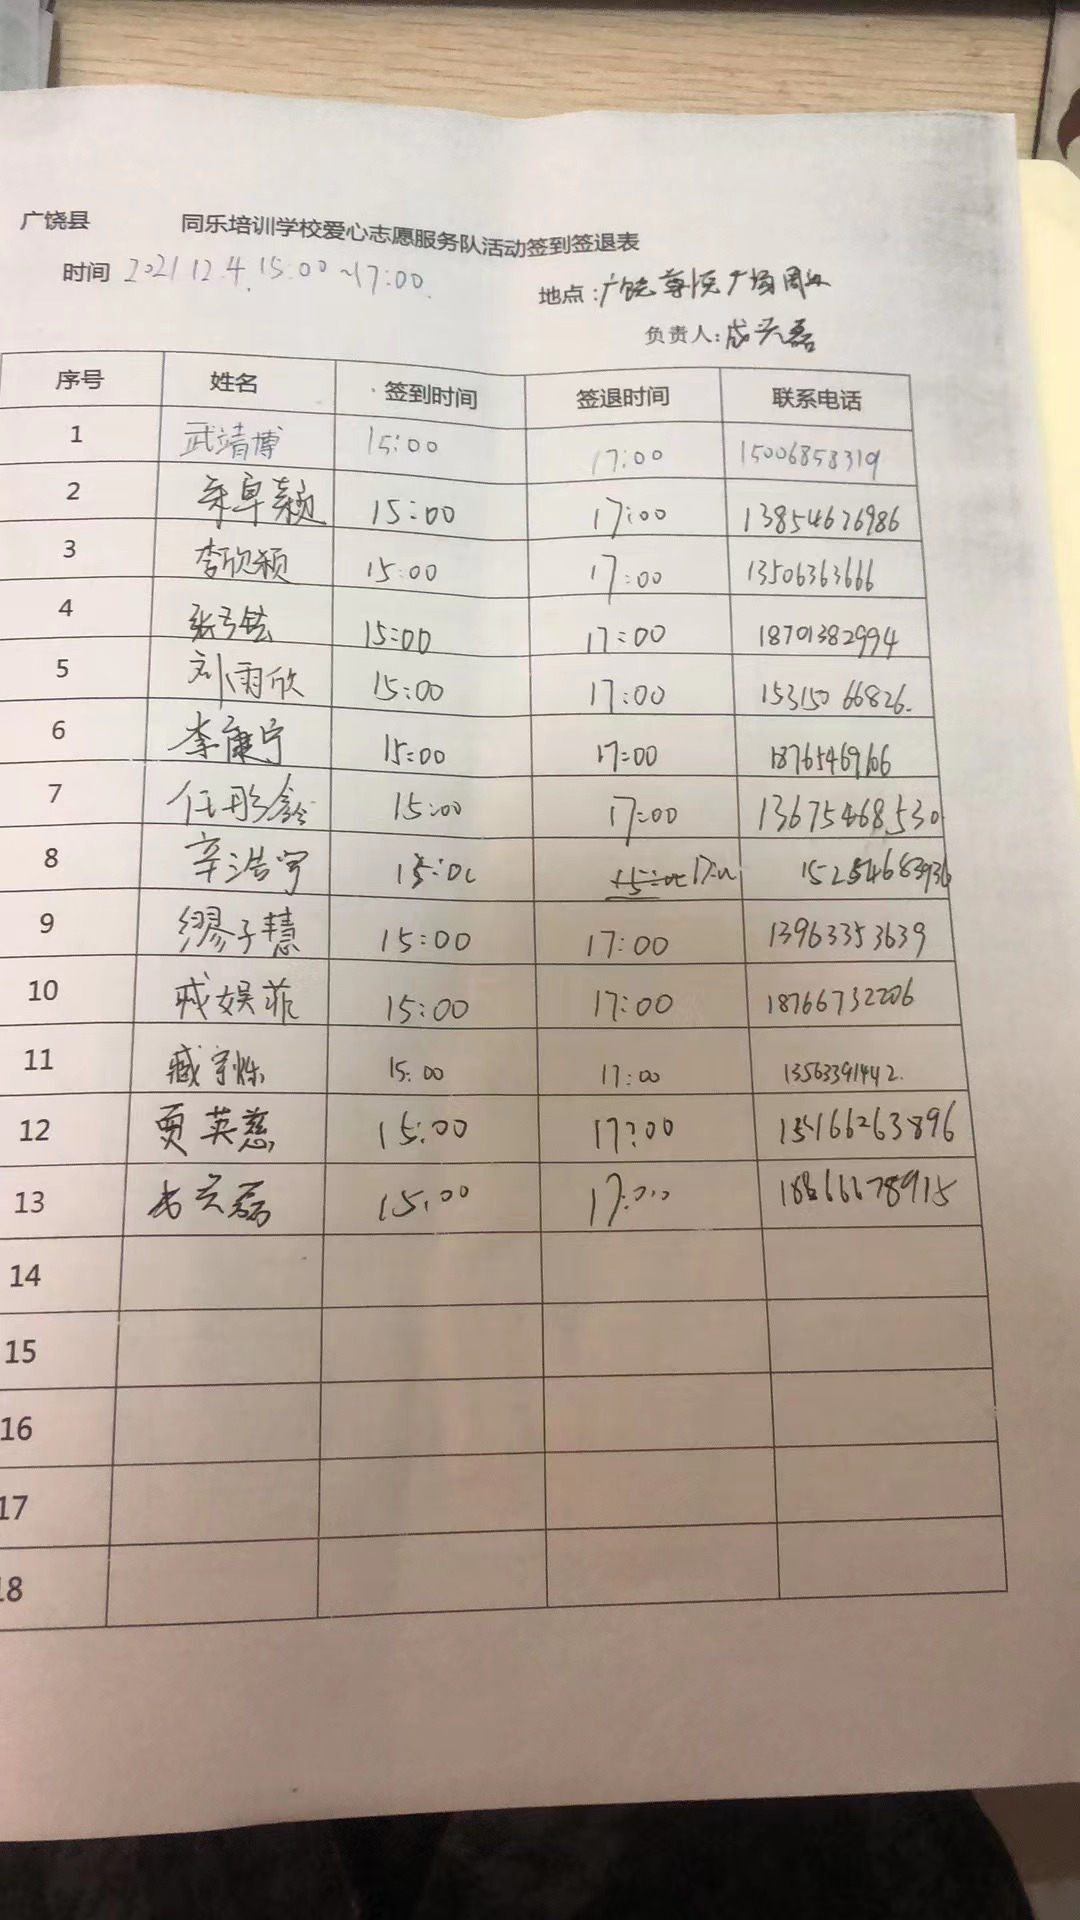 广饶县 同乐培训学校爱心志愿服务队活动签到签退表
时间 2021.12.4. 15:00~17:00.
地点:广饶 广场周
负责人:成 磊
序号 姓名 签到时间 签退时间 联系电话
1 武靖博 15:00 17:00 15006858319
2 颖 15:00 17:00 13854626986
3 李欣颖 15:00 17:00 13506363666
4 张 15:00 17:00 18701382994
5 刘雨欣 15:00 17:00 15315066826.
6 李健宁 15:00 17:00 18765469166
7 任彤 15:00 17:00 13675468530
8 辛浩宇 15:00 15:00 17:00
9 缪子慧 15:00 17:00 13963353639
10 娱菲 15:00 17:00 18766732206
11 臧 烁 15:00 17:00 13563391442.
12 贾英慈 15:00 17:00 15166263896
13 磊 15:00 17:00
14
15
16
17
18